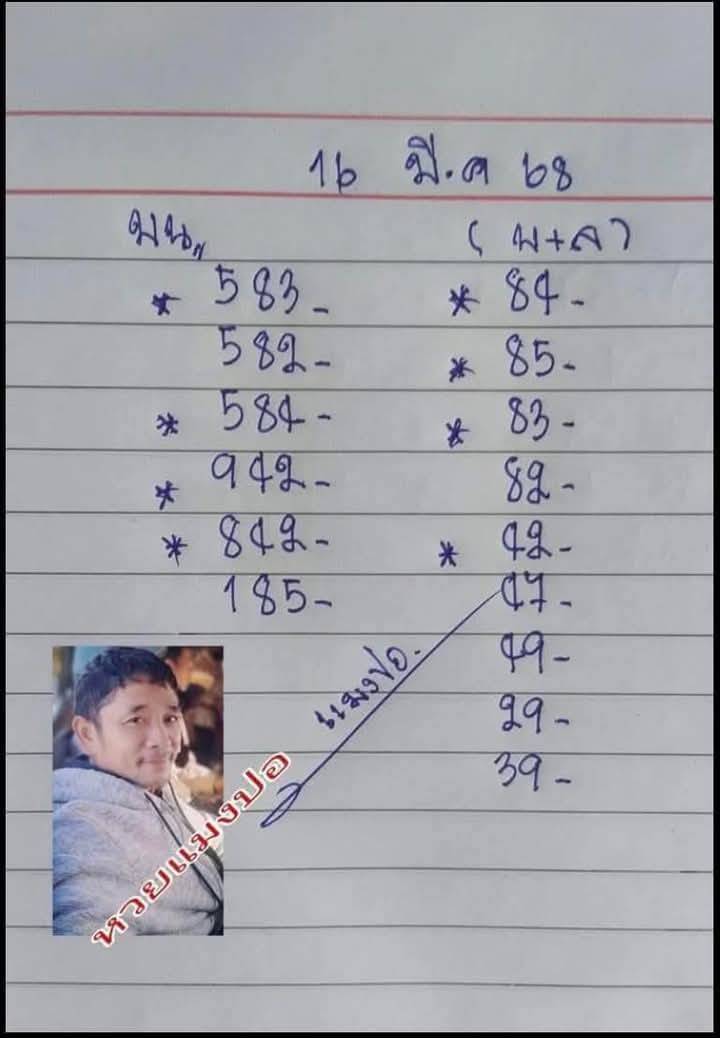 16 มี.ค 68
บน
(บ+ล)
* 583-
* 84-
582-
* 85-
* 584-
* 83-
* 942-
82-
* 842-
* 42-
185-
47-
49-
29-
39-
แมงปอ.
หวยแมงปอ